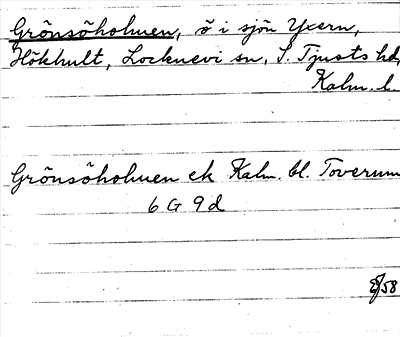 Grönsöholmen, ö i sjön Yxern,
Hökhult, Locknevi sn, S. Tjusts hd,
Kalm. l.
Grönsöholmen ek Kalm. bl. Toverum
6 G 9 d
58